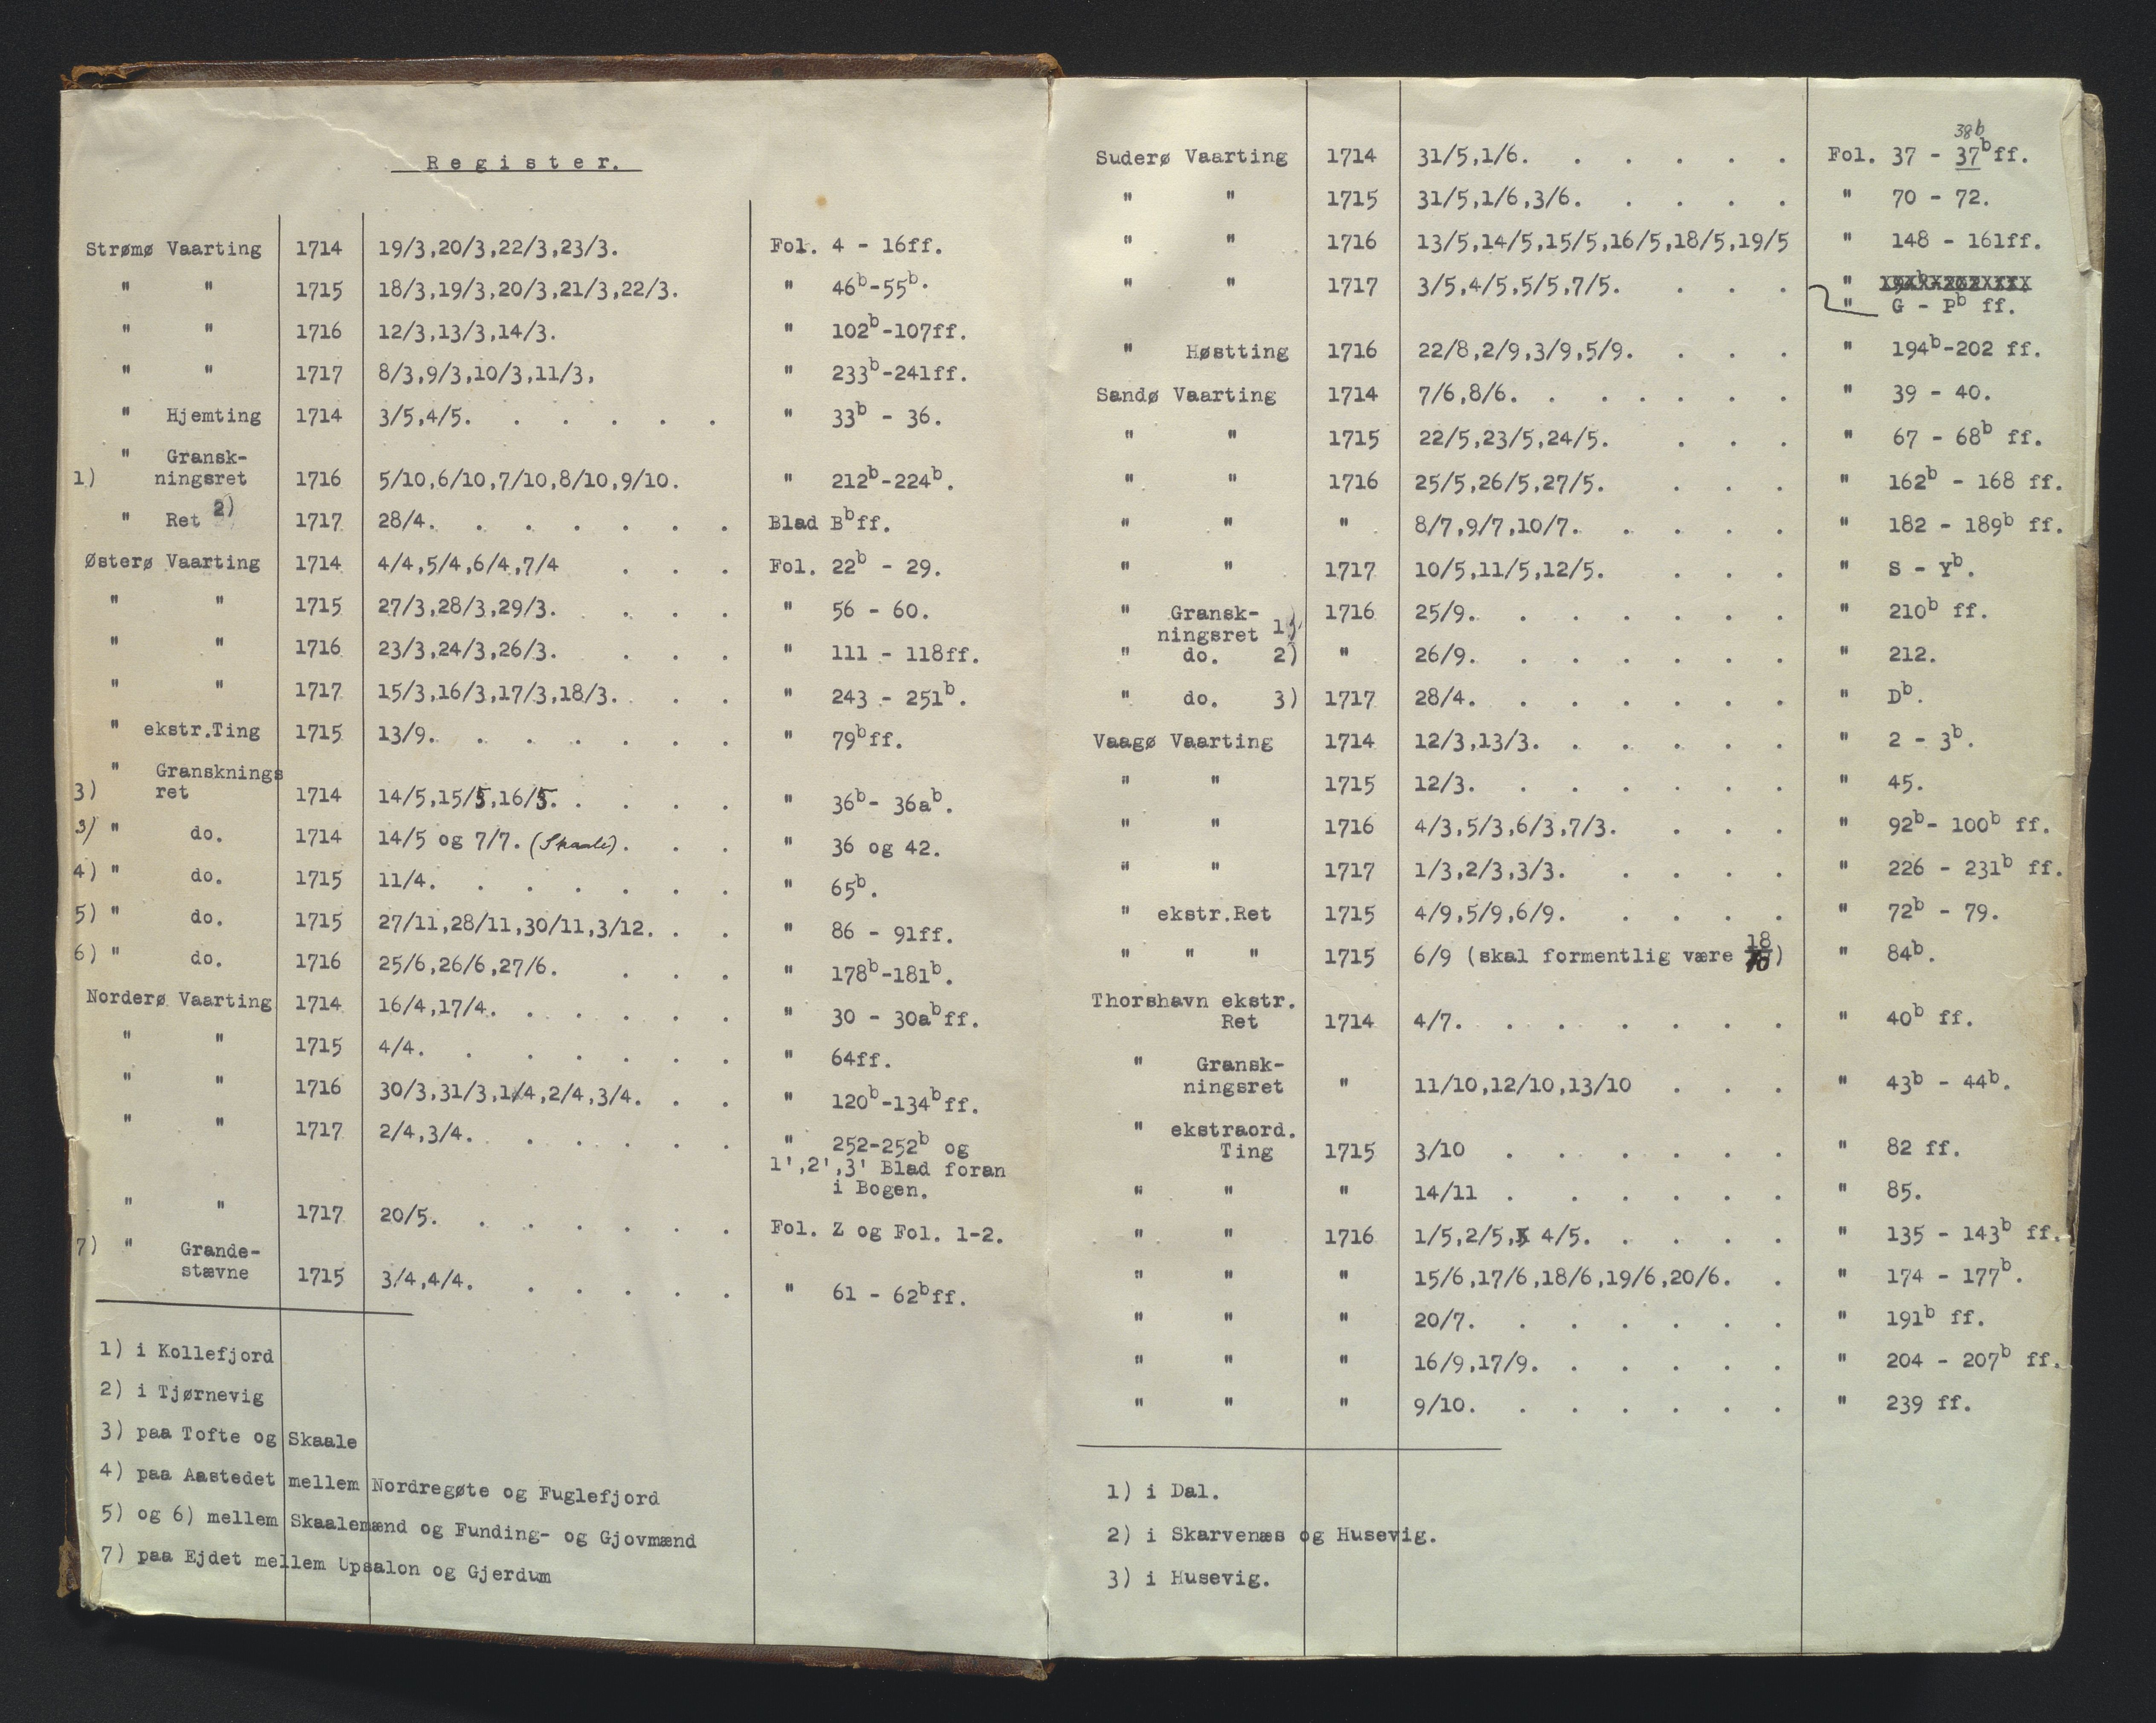 Register.
Strømø Vaarting 1714 19/3,20/3,22/3,23/3. Fol. 4 - 16ff.
" " 1715 18/3,19/3,20/3,21/3,22/3. " 46b-55b.
" " 1716 12/3,13/3,14/3. " 102b-107ff.
" " 1717 8/3,9/3,10/3,11/3, " 233b-241ff.
" Hjemting 1714 3/5,4/5. . . . . . " 33b - 36.
" Gransk-
1) ningsret 1716 5/10,6/10,7/10,8/10,9/10. " 212b-224b.
" Ret 2) 1717 28/4. . . . . . . Blad Bbff.
Østerø Vaarting 1714 4/4,5/4,6/4,7/4 . . . Fol. 22b - 29.
" " 1715 27/3,28/3,29/3. . . . " 56 - 60.
" " 1716 23/3,24/3,26/3. . . . " 111 - 118ff.
" " 1717 15/3,16/3,17/3,18/3. . . " 243 - 251b.
" ekstr.Ting 1715 13/9. . . . . . . " 79bff.
" Gransknings
3) ret 1714 14/5,15/5,16/5. . . . . " 36b- 36ab.
3) " do. 1714 14/5 og 7/7. (Skaale). . . " 36 og 42.
4) " do. 1715 11/4. . . . . . . " 65b.
5) " do. 1715 27/11,28/11,30/11,3/12. . . " 86 - 91ff.
6) " do. 1716 25/6,26/6,27/6. . . . " 178b-181b.
Norderø Vaarting 1714 16/4,17/4. . . . . . " 30 - 30abff.
" " 1715 4/4. . . . . . . " 64ff.
" " 1716 30/3,31/3,1/4,2/4,3/4. . . " 120b-134bff.
" " 1717 2/4,3/4. . . . . . " 252-252b og
1',2',3' Blad foran
i Bogen.
" " 1717 20/5. . . . . . . Fol. Z og Fol. 1-2.
7) " Grande-
stævne 1715 3/4,4/4. . . . . . " 61 - 62bff.
1) i Kollefjord
2) i Tjørnevig
3) paa Tofte og Skaale
4) paa Aastedet mellem Nordregøte og Fuglefjord
5) og 6) mellem Skaalemænd og Funding- og Gjovmænd
7) paa Ejdet mellem Upsalon og Gjerdum
38b
Suderø Vaarting 1714 31/5,1/6. . . . . . Fol. 37 - 37bff.
" " 1715 31/5,1/6,3/6. . . . . " 70 - 72.
" " 1716 13/5,14/5,15/5,16/5,18/5,19/5 " 148 - 161ff.
" " 1717 3/5,4/5,5/5,7/5. . . . "
" G - Pb ff.
" Høstting 1716 22/8,2/9,3/9,5/9. . . . " 194b-202 ff.
Sandø Vaarting 1714 7/6,8/6. . . . . . . " 39 - 40.
" " 1715 22/5,23/5,24/5. . . . " 67 - 68b ff.
" " 1716 25/5,26/5,27/5. . . . " 162b - 168 ff.
" " " 8/7,9/7,10/7. . . . . " 182 - 189b ff.
" " 1717 10/5,11/5,12/5. . . . " S - Yb.
" Gransk- 1716 25/9. . . . . . . " 210b ff.
ningsret 1)
" do. 2) " 26/9. . . . . . . " 212.
" do. 3) 1717 28/4. . . . . . . " Db.
Vaagø Vaarting 1714 12/3,13/3. . . . . . " 2 - 3b.
" " 1715 12/3. . . . . . . " 45.
" " 1716 4/3,5/3,6/3,7/3. . . . " 92b- 100b ff.
" " 1717 1/3,2/3,3/3. . . . . " 226 - 231b ff.
" ekstr.Ret 1715 4/9,5/9,6/9. . . . . " 72b - 79.
" " " 1715 6/9 (skal formentlig være 18/10) " 84b.
Thorshavn ekstr.
Ret 1714 4/7. . . . . . . " 40b ff.
" Gransk-
ningsret " 11/10,12/10,13/10 . . . " 43b - 44b.
" ekstraord.
Ting 1715 3/10 . . . . . . " 82 ff.
" " " 14/11 . . . . . . " 85.
" " 1716 1/5,2/5, 4/5. . . . . " 135 - 143b ff.
" " " 15/6,17/6,18/6,19/6,20/6. . " 174 - 177b.
" " " 20/7. . . . . . . " 191b ff.
" " " 16/9,17/9. . . . . . " 204 - 207b ff.
" " " 9/10. . . . . . . " 239 ff.
1) i Dal.
2) i Skarvenæs og Husevig.
3) i Husevig.